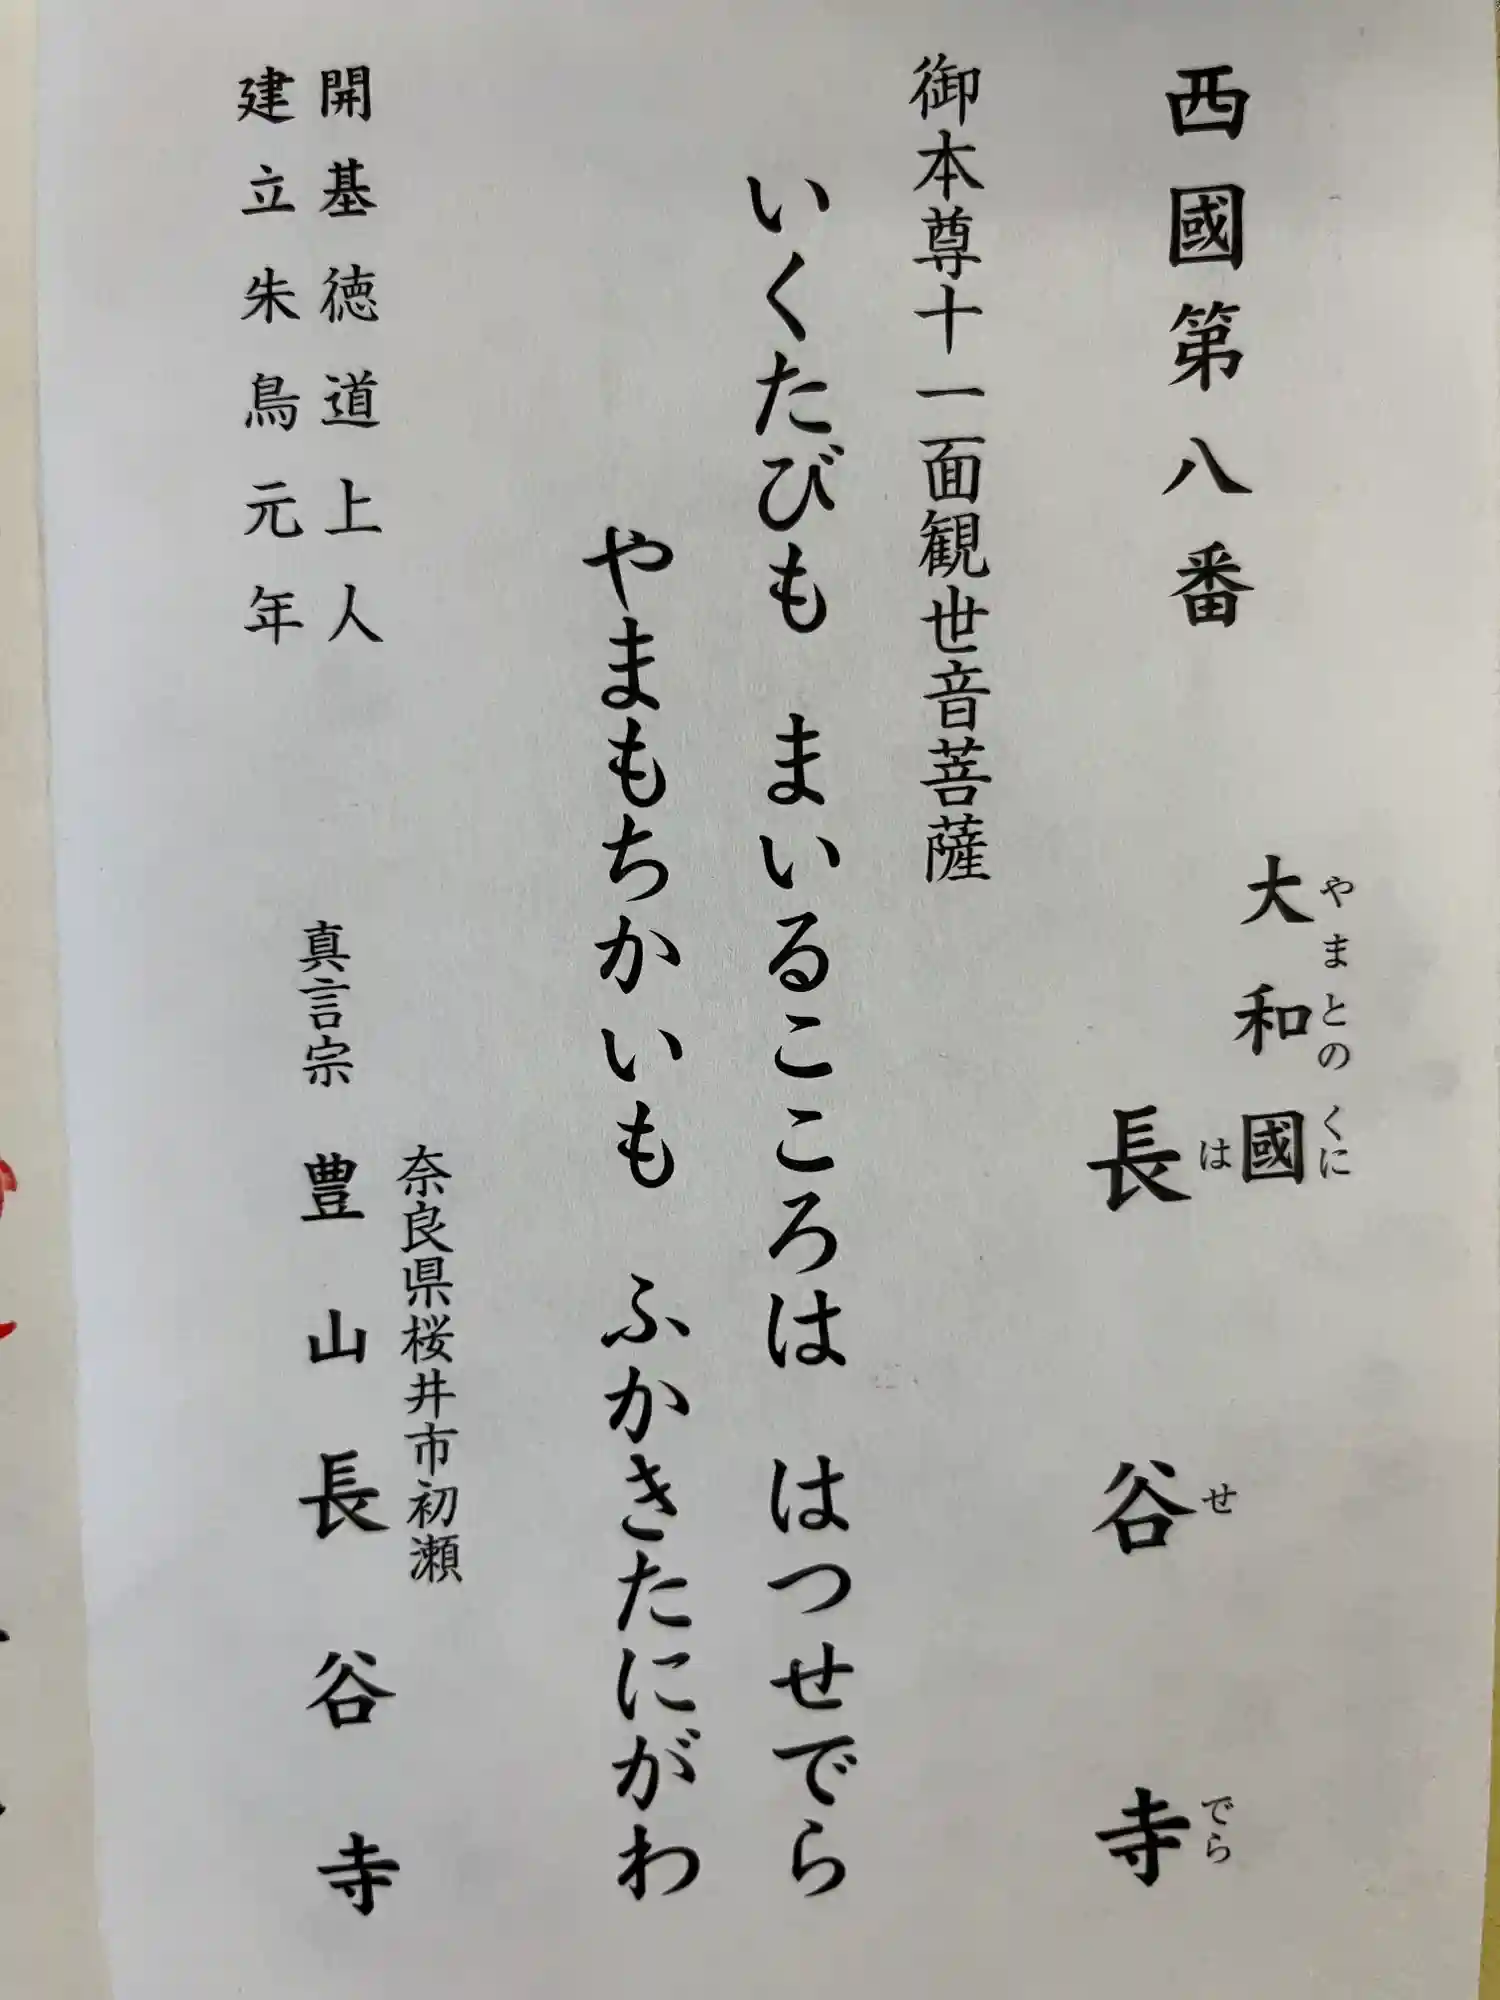 西國第八番
大和國
やまとのくに
長谷寺
はせでら
御本尊十一面観世音菩薩
いくたびも まいるこころは はつせでら
やまもちかいも ふかきたにがわ
開基徳道上人
建立朱鳥元年
奈良県桜井市初瀬
真言宗 豊山長谷寺